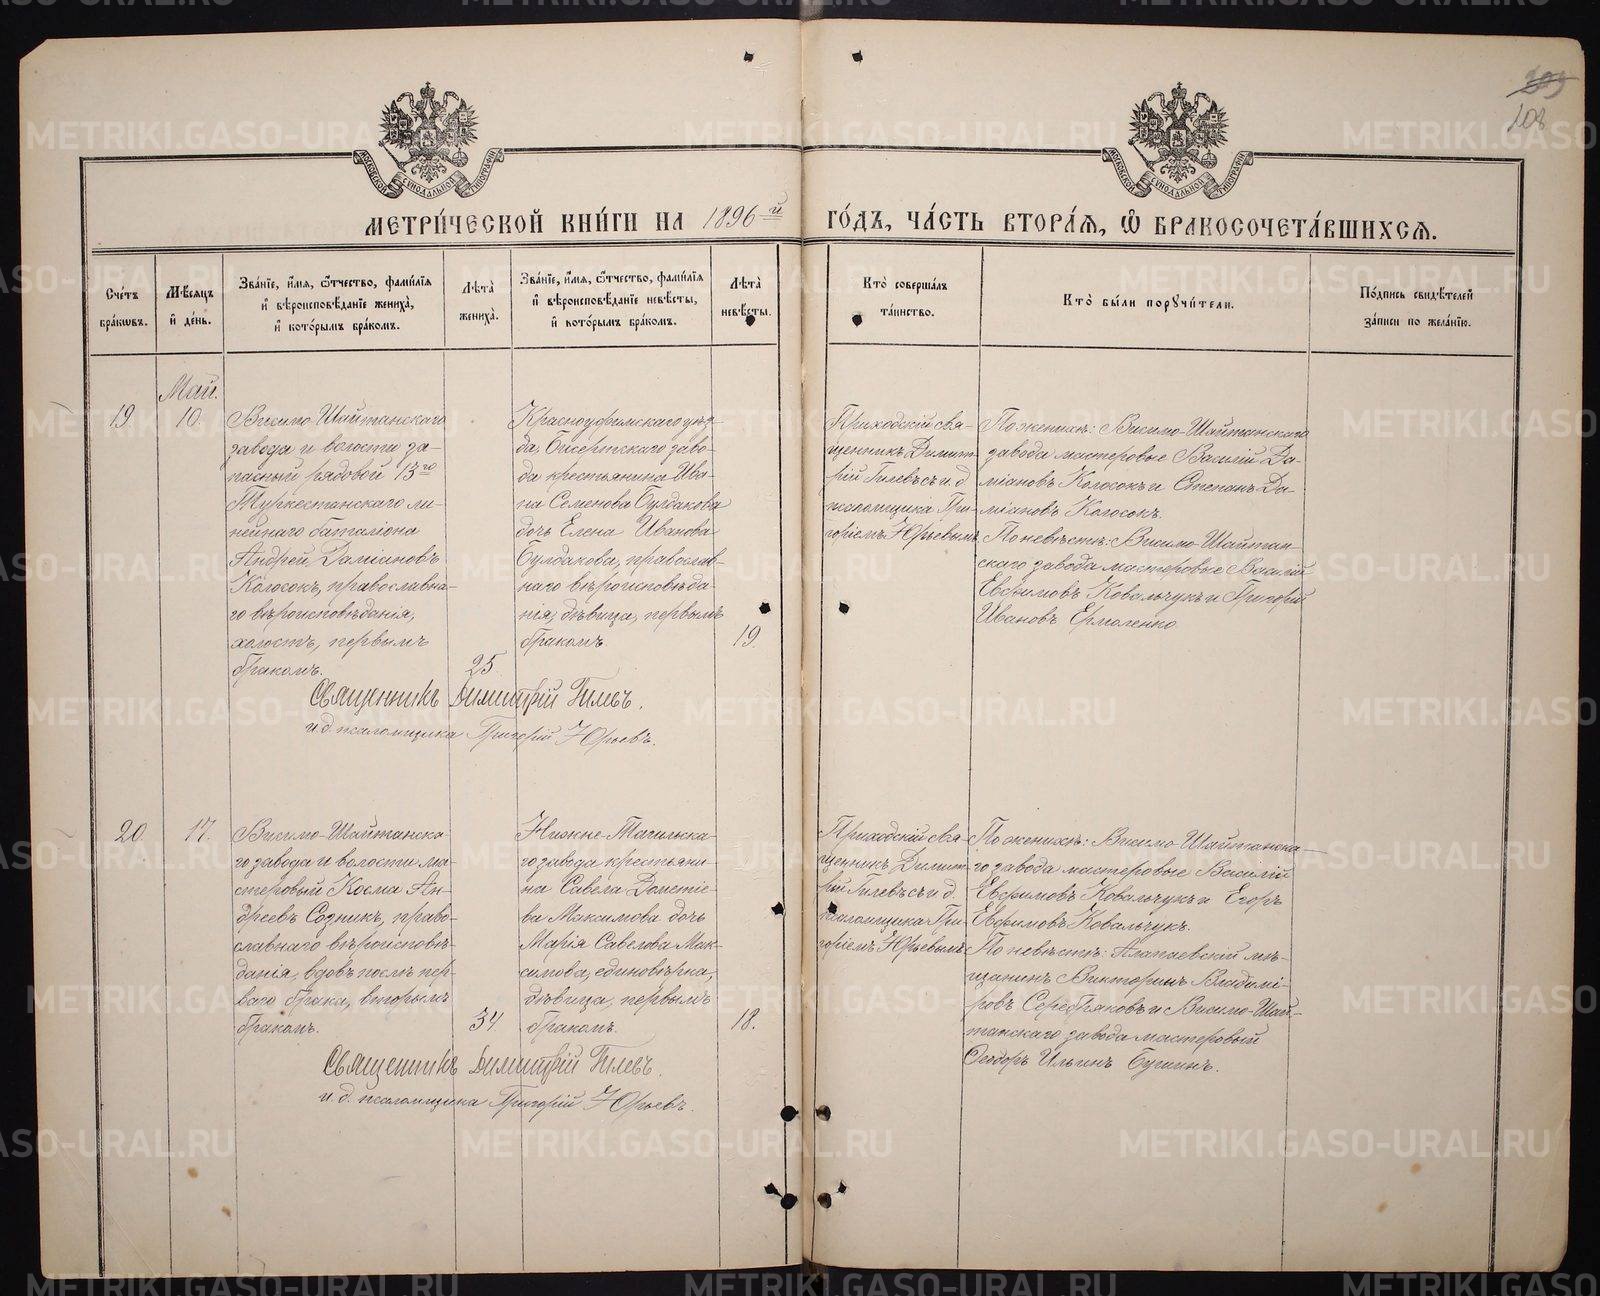 309
108
МОСКОВСКОЙ СѴНОДАЛЬНОЙ ТИПОГРАФІИ
МОСКОВСКОЙ СѴНОДАЛЬНОЙ ТИПОГРАФІИ
МЕТРИ́ЧЕСКОЙ КНИ́ГИ НА 1896 й ГО́ДЪ, ЧА́СТЬ ВТОРА́Я, Ѽ БРАКОСОЧЕТА́ВШИХСЯ.
Сче́тъ
бра́кѡвъ.
Мѣ́сяцъ
и҆ де́нь.
Зва́нїе, и҆́мя, ѻ҆́тчество, фами́лїя
и҆ вѣроисповѣ́данїе жениха̀,
и҆ кото́рымъ бра́комъ.
Лѣта̀
жениха̀.
Зва́нїе, и҆́мя, ѻ҆́тчество, фами́лїя
и҆ вѣроисповѣ́данїе невѣ́сты,
и҆ кото́рымъ бра́комъ.
Лѣта̀
невѣ́сты.
Кто̀ соверша́лъ
та́инство.
Кто̀ бы́ли порꙋчи́тели.
По́дпись свидѣ́телей
за́писи по жела́нїю.
Май.
19.
10.
Висимо-Шайтанскаго
завода и волости за-
пасный рядовой 13го
Туркестанскаго ли-
нейнаго баталіона
Андрей Даміановъ
Колосокъ, православна-
го вѣроисповѣданія,
холостъ, первымъ
бракомъ.
25
Красноуфимскаго уѣз-
да, Бисертскаго заво-
да крестьянина Ива-
на Семенова Булдакова
дочь Елена Иванова
Булдакова, православ-
наго вѣроисповѣда-
нія, дѣвица, первымъ
бракомъ.
19.
Приходскій свя-
щенникъ Димит-
рій Гилевъ съ и. д.
псаломщика Гри-
горіемъ Юрьевымъ
По женихѣ: Висимо-Шайтанскаго
завода мастеровые Василій Да-
міановъ Колосокъ и Степанъ Да-
міановъ Колосокъ.
По невѣстѣ: Висимо-Шайтан-
скаго завода мастеровые Василій
Евфимовъ Ковальчукъ и Григорій
Ивановъ Ермоленко.
Священникъ Димитрій Гилевъ.
и. д. псаломщика Григорій Юрьевъ.
20
17.
Висимо-Шайтанска-
го завода и волости ма-
стеровый Косма Ан-
дреевъ Содникъ, право-
славнаго вѣроисповѣ-
данія, вдовъ послѣ пер-
ваго брака, вторымъ
бракомъ.
34
Нижне-Тагильска-
го завода крестьяни-
на Савела Дометіе-
ва Максимова дочь
Марія Савелова Мак-
симова, единовѣрка,
дѣвица, первымъ
бракомъ.
18.
Приходскій свя-
щенникъ Димит-
рій Гилевъ съ и. д.
псаломщика Гри-
горіемъ Юрьевымъ
По женихѣ: Висимо-Шайтанска-
го завода мастеровые Василій
Евфимовъ Ковальчукъ и Егоръ
Евфимовъ Ковальчукъ.
По невѣстѣ: Алапаевскій мѣ-
щанинъ Викторинъ Владимі-
ровъ Серебряковъ и Висимо-Шай-
танскаго завода мастеровый
Ѳеодоръ Ильинъ Бушинъ.
Священникъ Димитрій Гилевъ.
и. д. псаломщика Григорій Юрьевъ.
METRIKI.GASO-URAL.RU